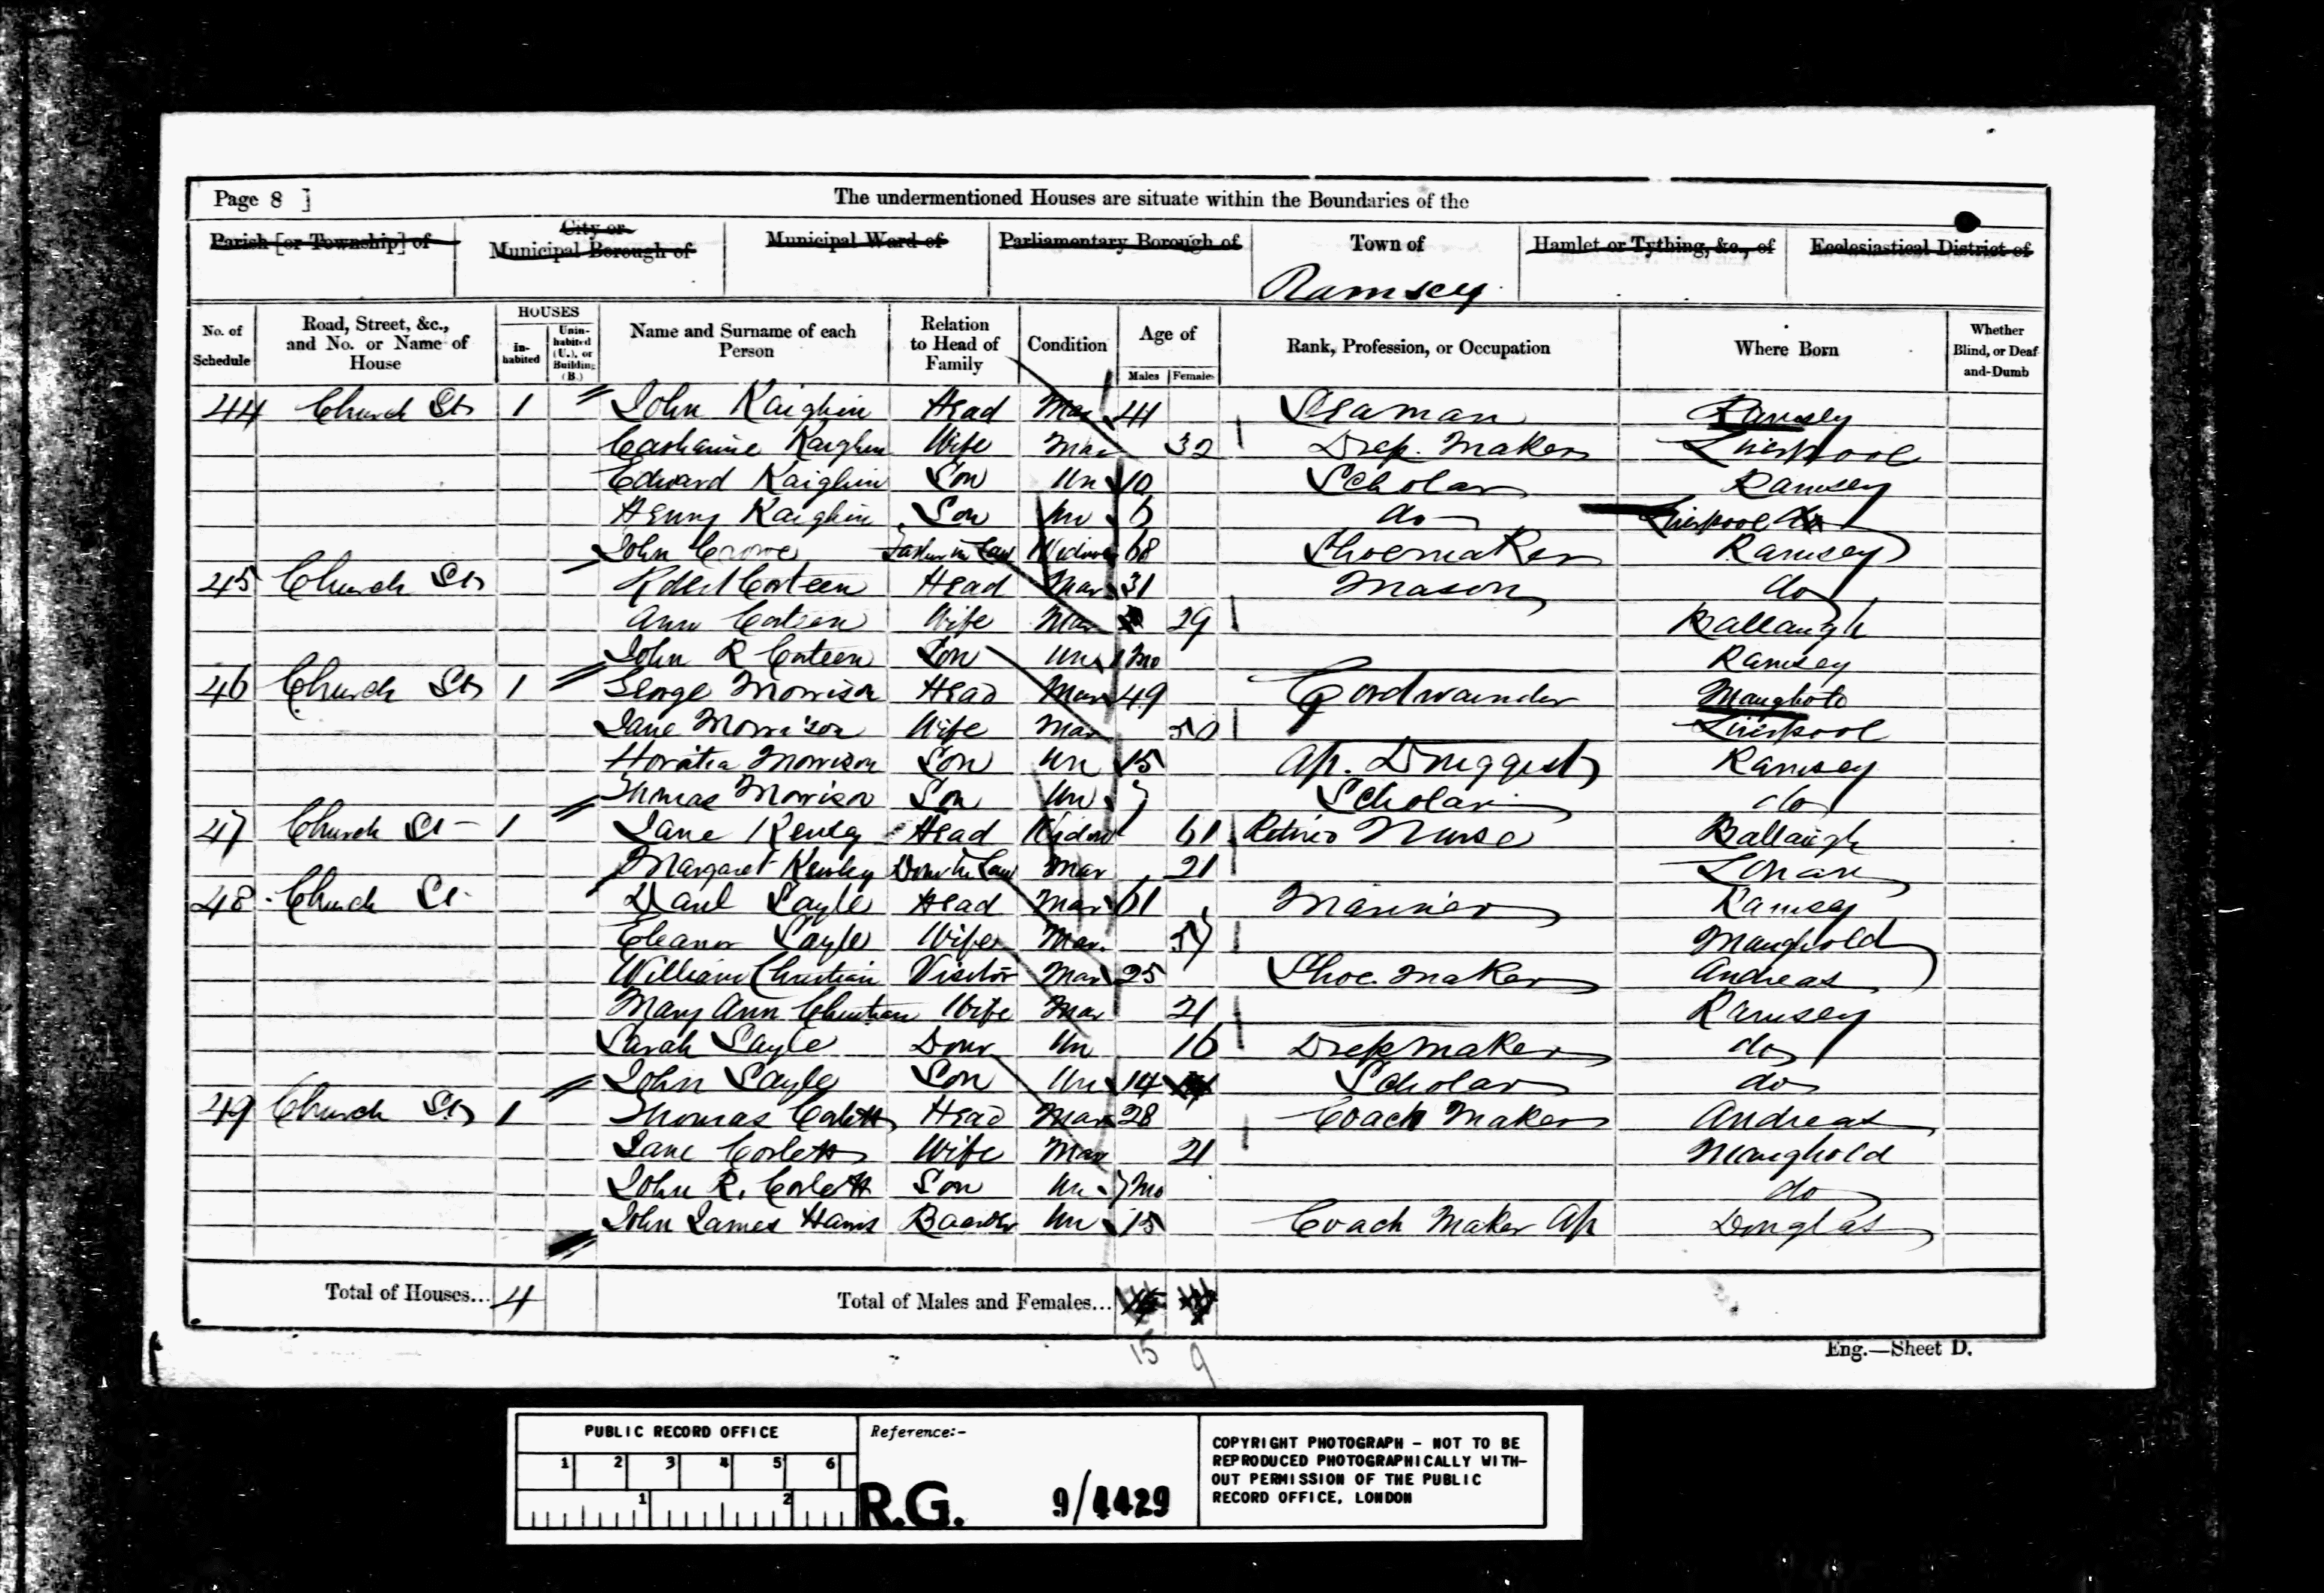 Page 8 ]
The undermentioned Houses are situate within the Boundaries of the
Parish [or Township] of City or Municipal Borough of Municipal Ward of Parliamentary Borough of Town of Hamlet or Tything, &c., of Ecclesiastical District of
Ramsey
No. of Schedule Road, Street, &c., and No. or Name of House HOUSES In-habited Unin-habited (U.), or Building (B.) Name and Surname of each Person Relation to Head of Family Condition Age of Males Females Rank, Profession, or Occupation Where Born Whether Blind, or Deaf-and-Dumb
44 Church St 1 John Kaighin Head Mar 41 Seaman Ramsey
Catharine Kaighin Wife Mar 32 Dress Maker Liverpool
Edward Kaighin Son Un 10 Scholar Ramsey
Henry Kaighin Son Un 6 do Liverpool
John Crowe Father in Law Widower 68 Shoemaker Ramsey
45 Church St Robert Corteen Head Mar 31 Mason do
Ann Corteen Wife Mar 29 Ballaugh
John R Corteen Son Un 1 Mo Ramsey
46 Church St 1 George Morrison Head Mar 49 Cordwainder Maughold
Jane Morrison Wife Mar 50 Liverpool
Horatia Morrison Son Un 15 Ap. Druggist Ramsey
Thomas Morrison Son Un 7 Scholar do
47 Church St 1 Jane Kewley Head Widow 61 Retired Nurse Ballaugh
Margaret Kewley Daur in Law Mar 21 Lonan
48 Church St Danl Sayle Head Mar 61 Mariner Ramsey
Eleanor Sayle Wife Mar. 57 Maughold
William Christian Visitor Mar 25 Shoe Maker Andreas
Mary Ann Christian Wife Mar 21 Ramsey
Sarah Sayle Daur Un 16 Dressmaker do
John Sayle Son Un 14 Scholar do
49 Church St 1 Thomas Corlett Head Mar 28 Coach Maker Andreas
Jane Corlett Wife Mar 21 Maughold
John R. Corlett Son Un 7 Mo do
John James Harris Boarder Un 15 Coach Maker Ap Douglas
Total of Houses... 4 Total of Males and Females...
15 9
Eng.—Sheet D.
PUBLIC RECORD OFFICE
1 2 3 4 5 6
1 2
Reference:-
R.G. 9/4429
COPYRIGHT PHOTOGRAPH - NOT TO BE
REPRODUCED PHOTOGRAPHICALLY WITH-
OUT PERMISSION OF THE PUBLIC
RECORD OFFICE, LONDON